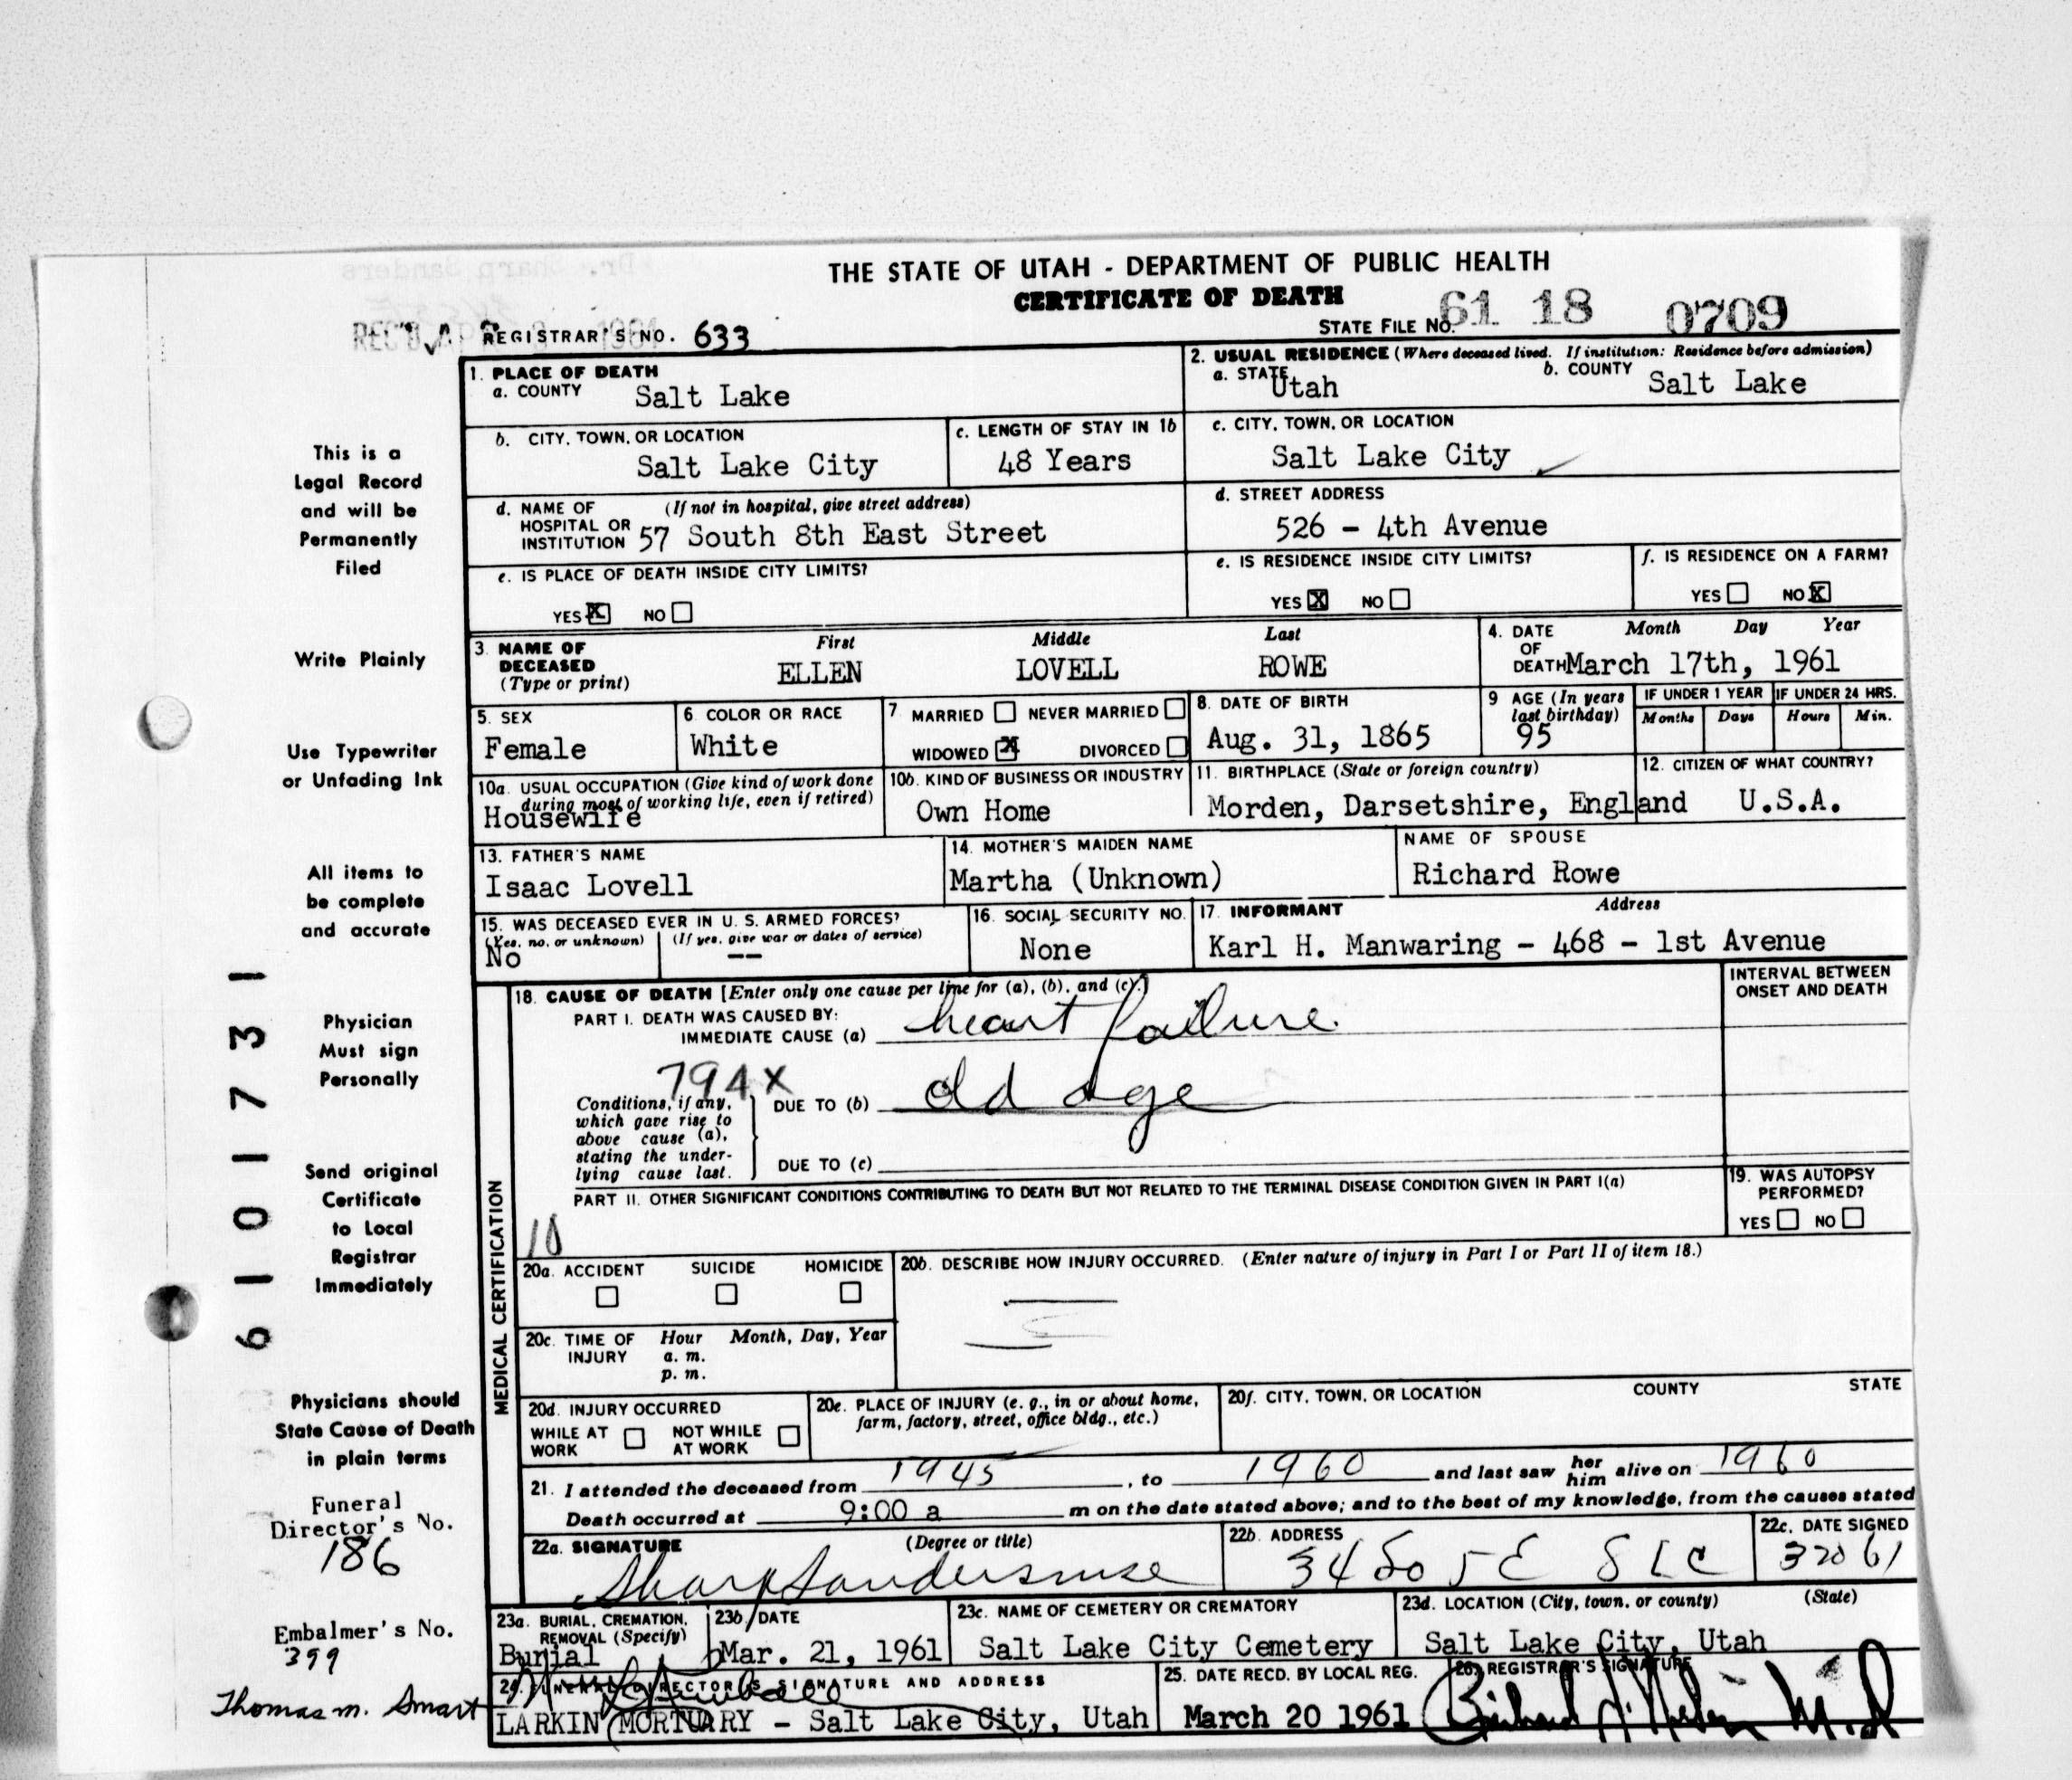 THE STATE OF UTAH - DEPARTMENT OF PUBLIC HEALTH
CERTIFICATE OF DEATH
REC'D
REGISTRAR'S NO. 633
STATE FILE No. 61 18 0709
1. PLACE OF DEATH
a. COUNTY Salt Lake
2. USUAL RESIDENCE (Where deceased lived. If institution: Residence before admission)
a. STATE Utah b. COUNTY Salt Lake
b. CITY, TOWN, OR LOCATION
Salt Lake City
c. LENGTH OF STAY IN 1b
48 Years
c. CITY, TOWN, OR LOCATION
Salt Lake City
d. NAME OF HOSPITAL OR INSTITUTION (If not in hospital, give street address)
57 South 8th East Street
d. STREET ADDRESS
526 - 4th Avenue
e. IS PLACE OF DEATH INSIDE CITY LIMITS?
YES X NO
e. IS RESIDENCE INSIDE CITY LIMITS?
YES X NO
f. IS RESIDENCE ON A FARM?
YES NO X
3. NAME OF DECEASED (Type or print)
First Middle Last
ELLEN LOVELL ROWE
4. DATE OF DEATH Month Day Year
March 17th, 1961
5. SEX
Female
6. COLOR OR RACE
White
7 MARRIED NEVER MARRIED
WIDOWED X DIVORCED
8. DATE OF BIRTH
Aug. 31, 1865
9 AGE (In years last birthday)
95
IF UNDER 1 YEAR
Months Days
IF UNDER 24 HRS.
Hours Min.
10a. USUAL OCCUPATION (Give kind of work done during most of working life, even if retired)
Housewife
10b. KIND OF BUSINESS OR INDUSTRY
Own Home
11. BIRTHPLACE (State or foreign country)
Morden, Darsetshire, England
12. CITIZEN OF WHAT COUNTRY?
U.S.A.
13. FATHER'S NAME
Isaac Lovell
14. MOTHER'S MAIDEN NAME
Martha (Unknown)
NAME OF SPOUSE
Richard Rowe
15. WAS DECEASED EVER IN U. S. ARMED FORCES?
(Yes, no, or unknown) (If yes, give war or dates of service)
No --
16. SOCIAL SECURITY NO.
None
17. INFORMANT Address
Karl H. Manwaring - 468 - 1st Avenue
MEDICAL CERTIFICATION
18. CAUSE OF DEATH [Enter only one cause per line for (a), (b), and (c).]
PART I. DEATH WAS CAUSED BY:
IMMEDIATE CAUSE (a) heart failure
INTERVAL BETWEEN
ONSET AND DEATH
794X
Conditions, if any, which gave rise to above cause (a), stating the underlying cause last.
DUE TO (b) old age
DUE TO (c)
PART II. OTHER SIGNIFICANT CONDITIONS CONTRIBUTING TO DEATH BUT NOT RELATED TO THE TERMINAL DISEASE CONDITION GIVEN IN PART I(a)
19. WAS AUTOPSY PERFORMED?
YES NO
10
20a. ACCIDENT SUICIDE HOMICIDE
20b. DESCRIBE HOW INJURY OCCURRED. (Enter nature of injury in Part I or Part II of item 18.)
20c. TIME OF INJURY Hour Month, Day, Year
a. m.
p. m.
20d. INJURY OCCURRED
WHILE AT WORK NOT WHILE AT WORK
20e. PLACE OF INJURY (e. g., in or about home, farm, factory, street, office bldg., etc.)
20f. CITY, TOWN, OR LOCATION COUNTY STATE
21. I attended the deceased from 1945, to 1960 and last saw her him alive on 1960
Death occurred at 9:00 a m on the date stated above; and to the best of my knowledge, from the causes stated
22a. SIGNATURE (Degree or title)
22b. ADDRESS
SLC
22c. DATE SIGNED
32061
23a. BURIAL, CREMATION, REMOVAL (Specify)
Burial
23b. DATE
Mar. 21, 1961
23c. NAME OF CEMETERY OR CREMATORY
Salt Lake City Cemetery
23d. LOCATION (City, town, or county) (State)
Salt Lake City, Utah
24. FUNERAL DIRECTOR'S SIGNATURE AND ADDRESS
LARKIN MORTUARY - Salt Lake City, Utah
25. DATE RECD. BY LOCAL REG.
March 20 1961
26. REGISTRAR'S SIGNATURE
This is a
Legal Record
and will be
Permanently
Filed
Write Plainly
Use Typewriter
or Unfading Ink
All items to
be complete
and accurate
Physician
Must sign
Personally
Send original
Certificate
to Local
Registrar
Immediately
Physicians should
State Cause of Death
in plain terms
Funeral
Director's No.
186
Embalmer's No.
399
Thomas M. Smart
6101731